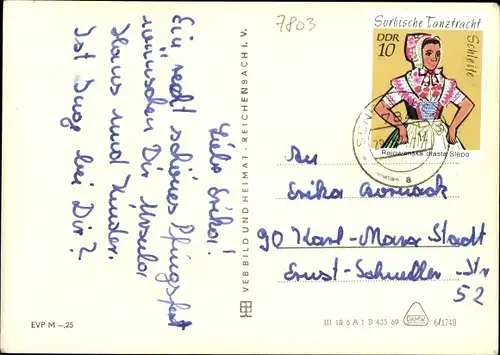 7803
Liebe Erika!
Ein recht schönes Pfingstfest
wünschen Dir Ursula
Hans und Kinder.
Ist Inge bei Dir?
VEB BILD UND HEIMAT · REICHENBACH I. V.
Sorbische Tanztracht
DDR
10
Schleife
Rejowanska drasta Slepo
78
a
An
Erika
90 Karl-Marx-Stadt
Ernst-Schneller-Str
52
EVP M -,25
III 18 6 A 1 B 405/69
DAMW
6/1748